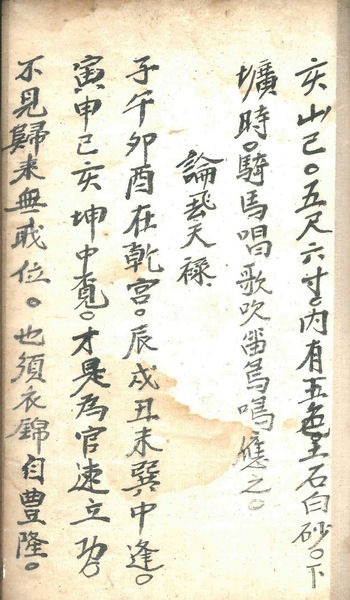 亥山巳。五尺六寸。内有五色玉石白砂。下
壙時。騎馬唱歌吹笛鳥鳴應之。
論飛天禄
子午卯酉在乾宮。辰戌丑未巽中逢。
寅申巳亥坤中覔。才是為官速立功。
不見歸來無戎位。也須衣錦自豊隆。